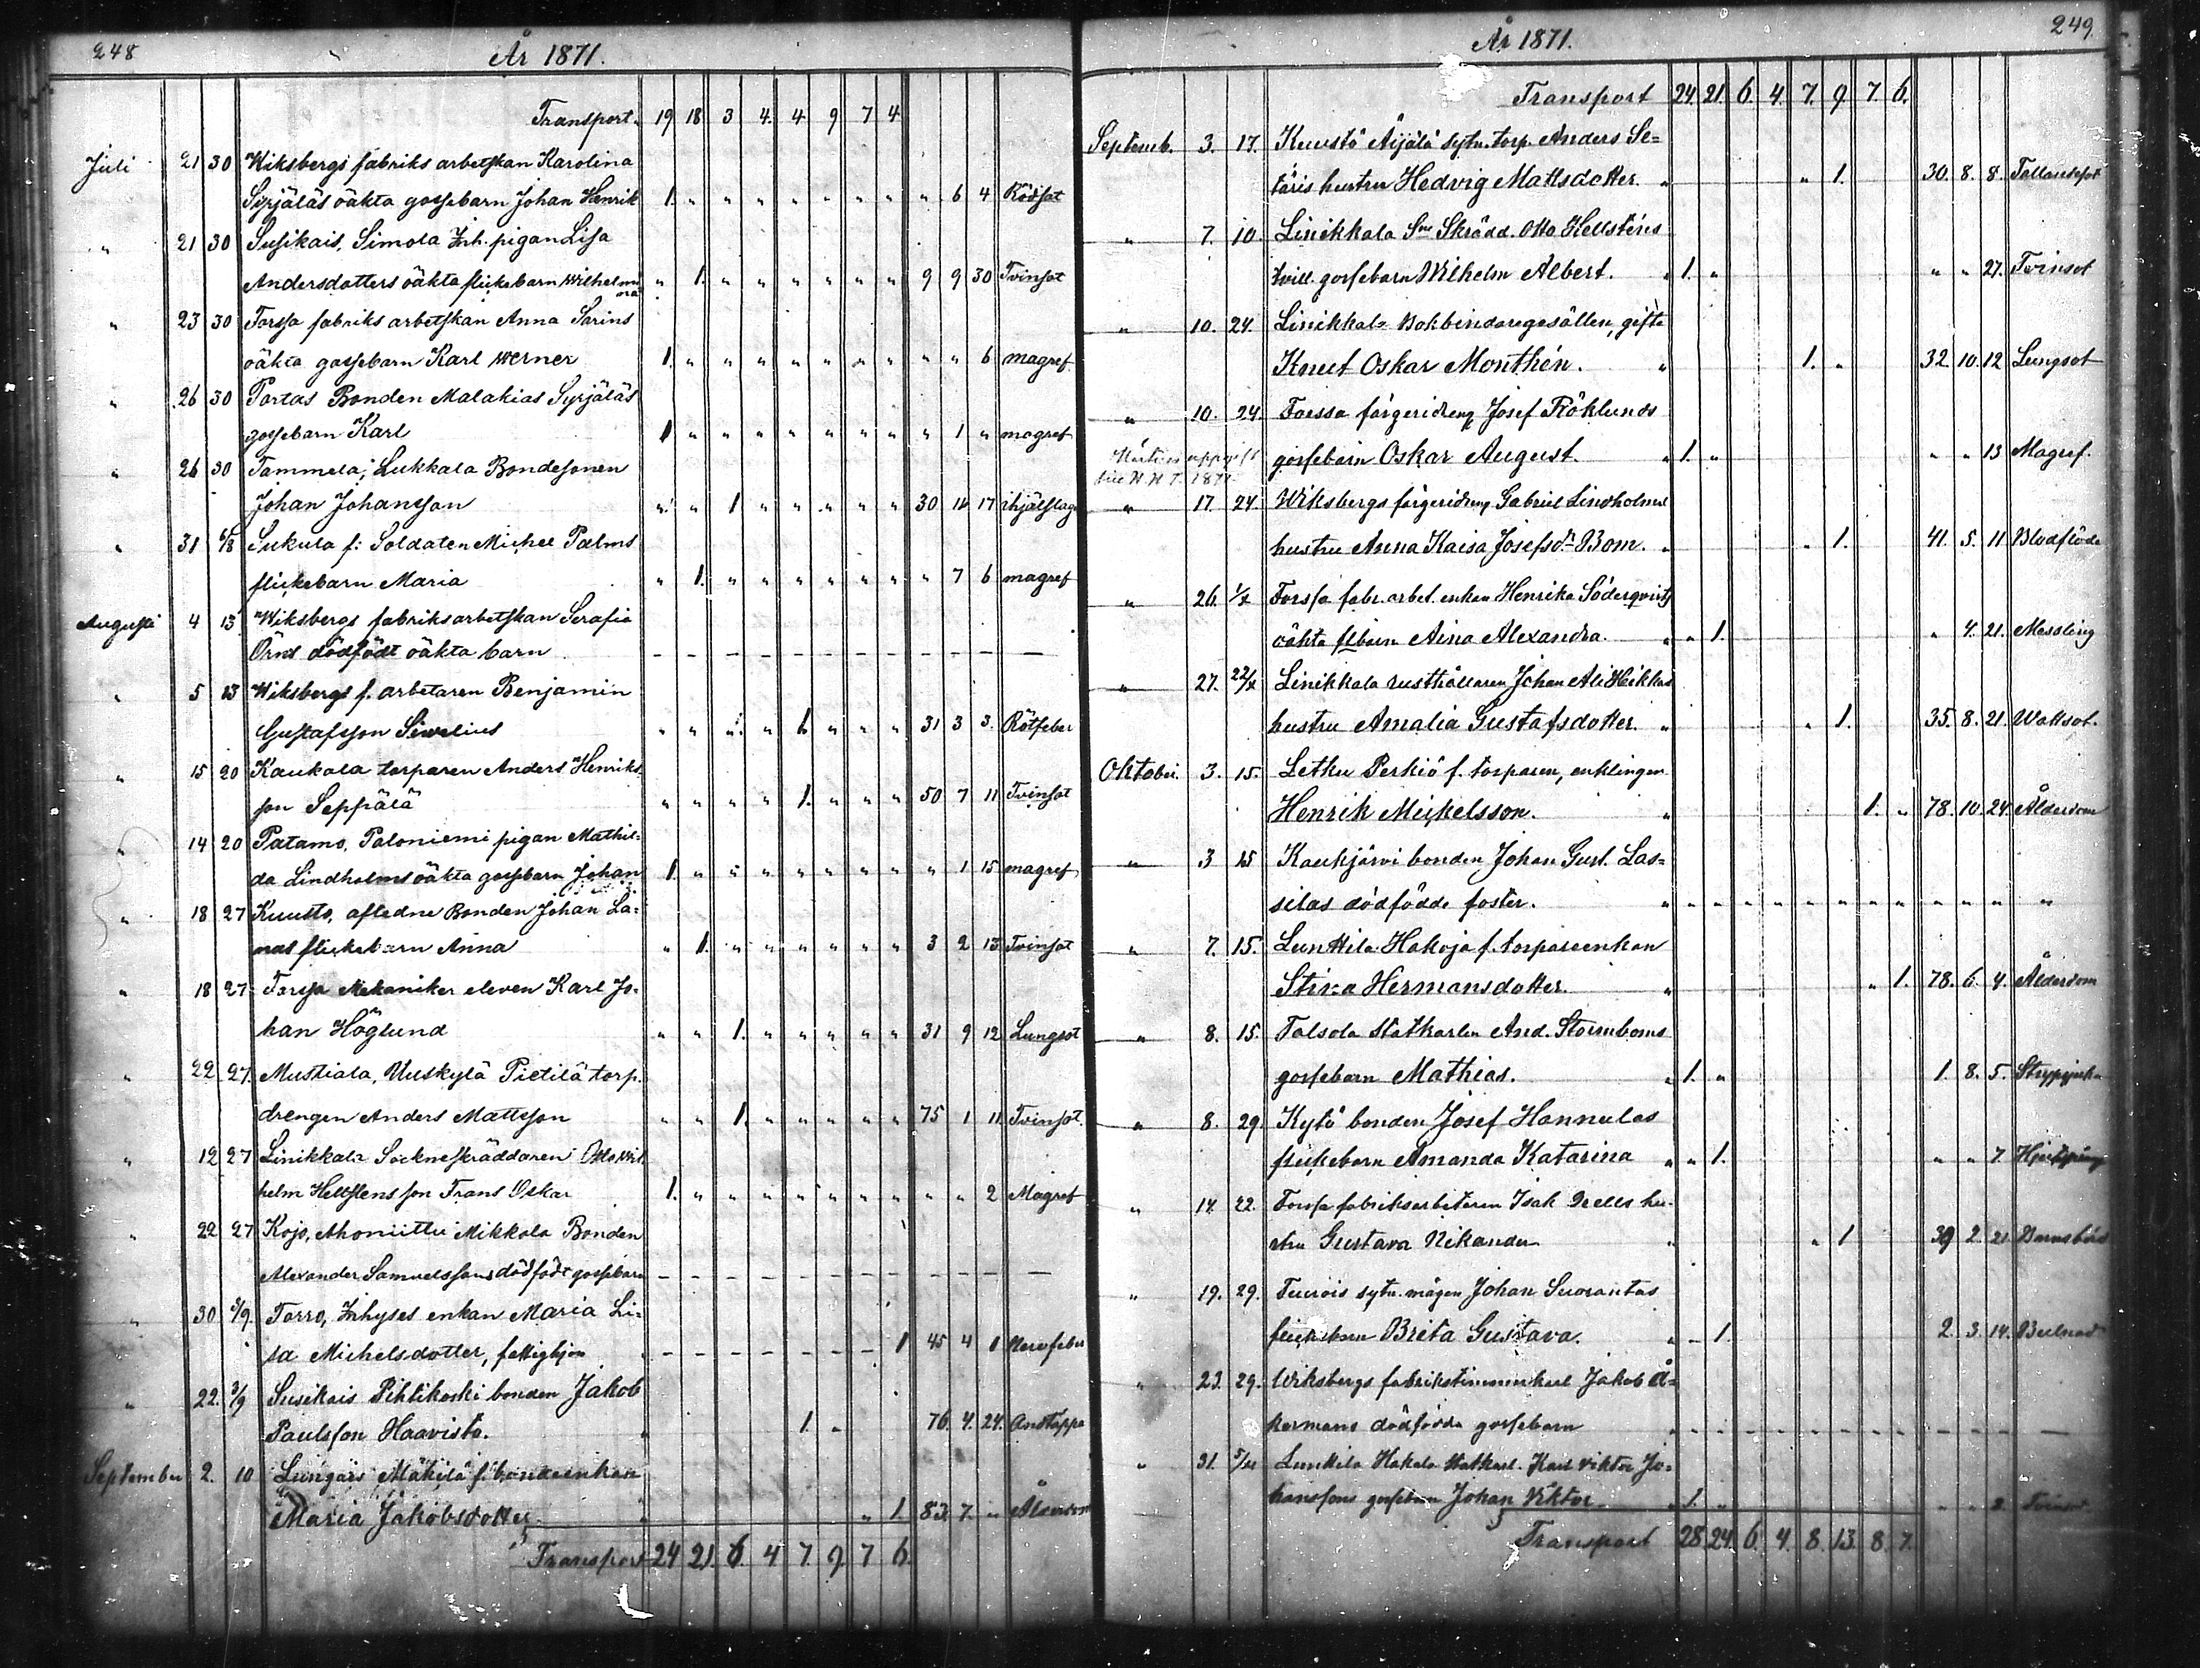 248
År 1871.
Transport. 19 18 3 4. 4. 9 7 4
Juli 21 30 Wiksbergs fabriks arbetskan Karolina
Syrjäläs oäkta gossebarn Johan Henrik 1. " " " " " " " " 6 4 Rödsot
" 21 30 Susikais, Simola Inh. pigan Lisa
Andersdotters oäkta flickebarn Wilhelmina " 1. " " " " " " 9 9 30 Tvinsot
" 23 30 Forssa fabriks arbetskan Anna Sarins
oäkta gossebarn Karl Werner 1. " " " " " " " " " 6 magref
" 26 30 Portas Bonden Malakias Syrjäläs
gossebarn Karl 1 " " " " " " " " 1 " magref
" 26 30 Tammela, Lukkala Bondesonen
Johan Johansson " " 1 " " " " " 30 17 ihjälslag
" 31 6/8 Sukula f: Soldaten Michel Palms
flickebarn Maria " 1. " " " " " " " 7 6 magref
Augusti 4 13 Wiksbergs fabriksarbetskan Serafia
Örns dödfödt oäkta barn – – – – – – – – – – –
" 5 13 Wiksbergs f. arbetaren Benjamin
Gustafsson Sivelius " " " " 1. " " " 31 3 3. Rötfeber
" 15 20 Kaukola torparen Anders Henriks
son Seppälä " " " " 1. " " " 50 7 11 Tvinsot
" 14 20 Patamo, Paloniemi pigan Mathil=
da Lindholms oäkta gossebarn Johan 1. " " " " " " " " 1 15 magref
" 18 27 Kuusto, afledne Bonden Johan La=
nas flickebarn Anna " 1. " " " " " " 3 2 13 Tvinsot
" 18 27 Forssa Mekaniker eleven Karl Jo=
han Höglund " " 1. " " " " " 31 9 12 Lungsot
" 22 27. Mustiala, Uuskylä Pietilä torp.
drengen Anders Mattsson " " 1. " " " " " 75 1 11 Tvinsot.
" 12 27 Linikkala Sockneskräddaren Otto Wil
helm Hellstens son Frans Oskar 1. " " " " " " " " " 2 Magref
" 22 27 Kojo, Ahoniittu Mikkola Bonden
Alexander Samuelssons dödfödt gossebarn – – – – – – – – – – –
" 30 3/9. Torro, Inhyses enkan Maria Li=
sa Michelsdotter, fattighjon – – – – – – – 1 45 4 1 Nervfeber
" 22. 3/9 Susikais Pihtikoski bonden Jakob
Paulsson Haavisto. " 1. " 76. 4. 24. Andtäppa
September 2. 10 Lungärs Mäkilä f. bondeenkan
Maria Jakobsdotter. " " 1. 83. 7. " Ålderdom
Transport 24 21. 6. 4 7. 9 7 6.
249.
År 1871.
Transport 24. 21. 6. 4. 7. 9. 7. 6.
Septemb. 3. 17. Kuustö Äijälä sytn. torp. Anders Se=
täris hustru Hedvig Mattsdotter. " " 1. 30. 8. 8.
" 7. 10. Linikkala Sne Skrädd. Otto Hellsténs
tvill. gossebarn Wilhelm Albert. " 1. " " " 27. Tvinsot
" 10. 24. Linikkala Bokbindaregesällen, gifte
Knut Oskar Monthén. " 1. " 32. 10. 12 Lungsot
" 10. 24. Forssa färgeridreng Josef Röklunds
gossebarn Oskar August. " 1. " " " 13 Magref.
" 17. 24. Wiksbergs färgeridreng Gabriel Lindholms
hustru Anna Kaisa Josefsdr Bom. " " 1. 41. 5. 11 Blodflöde
" 26. 1/X Forssa fabr. arbet. enkan Henrika Söderqvists
oäkta flbarn Aina Alexandra. " " 1. " 4. 21. Messling
" 27. 22/X Linikkala rusthållaren Johan Ali Heikkas
hustru Amalia Gustafsdotter. " " 1. 35. 8. 21. Wattsot.
Oktober. 3. 15. Letku Perkiö f. torparen, enklingen
Henrik Mickelsson. " 1. " 78. 10. 24. Ålderdom
" 3 15 Kaukjärvi bonden Johan Gust. Las=
silas dödfödde foster. " " " " " " " " " " " " "
" 7. 15. Lunttila Hakoja f. torpareenkan
Stina Hermansdotter. " " 1. 78. 6. 4. Ålderdom
" 8. 15. Talsola statkarlen And. Stormboms
gossebarn Mathias. " 1. " 1. 8. 5. Strypsjuka
" 8. 29. Kytö bonden Josef Hannulas
flickebarn Amanda Katarina " " 1. " " 7.
" 14. 22. Forssa fabriksarbetaren Isak Uells hu=
stru Gustava Nikander " " 1 39 2 21 Barnsbörd
" 19. 29. Tuurois sytn. mågen Johan Suorantas
flickebarn Brita Gustava. " – 1. 2 3. 14. Bulnad
" 23. 29. Wiksbergs fabrikstimmerkarl Jakob Å=
kermans dödfödda gossebarn – – – – – – – – – – –
" 31. 5/11 Lunttila Hakala statkarl. Karl Viktor Jo=
hanssons gossebarn Johan Viktor. " 1. " " " 2. Tvinsot
Transport 28. 24. 6. 4. 8. 13. 8. 7.